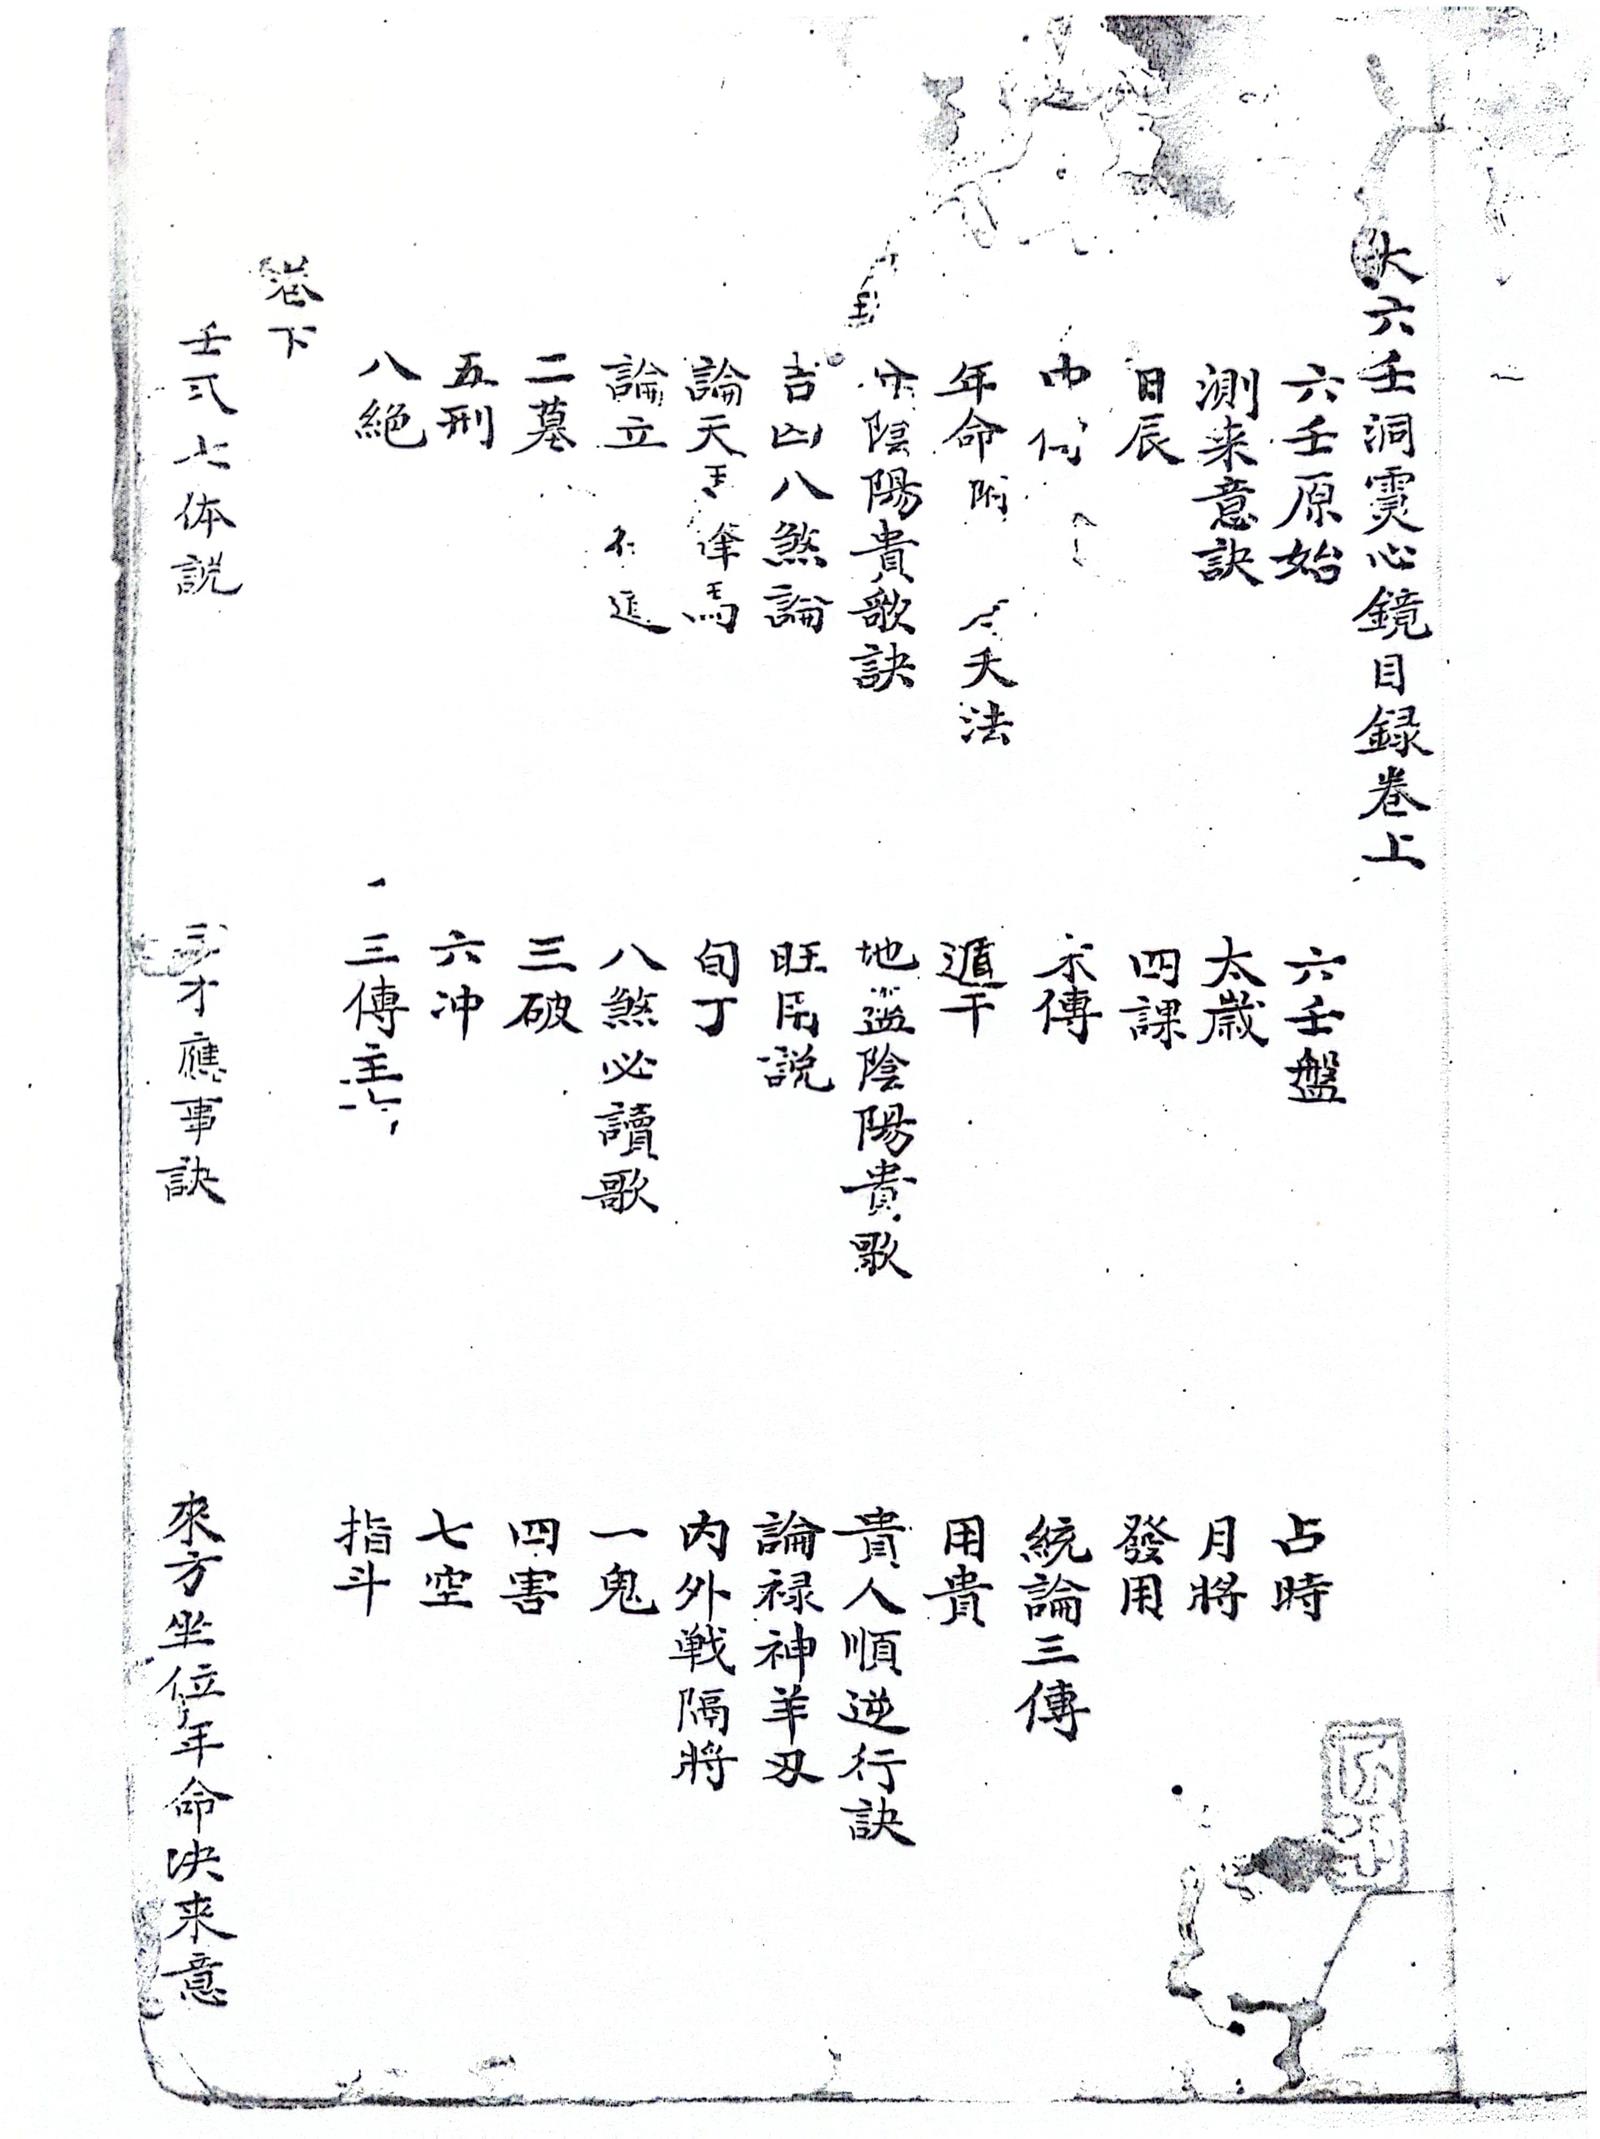 大六壬洞霛心鏡目録卷上
六壬原始 六壬盤 占時
測来意訣 太歳 月將
日辰 四課 發用
傳 統論三傳
年命附 天法 遁干 用貴
陰陽貴歌訣 地盤陰陽貴歌 貴人順逆行訣
吉凶八煞論 旺用説 論禄神羊刃
論天 馬 旬丁 内外戦隔將
論立 八煞必讀歌 一鬼
二墓 三破 四害
五刑 六冲 七空
八絶 三傳主 指斗
卷下
壬式七体説 三才應事訣 來方坐位年命决来意